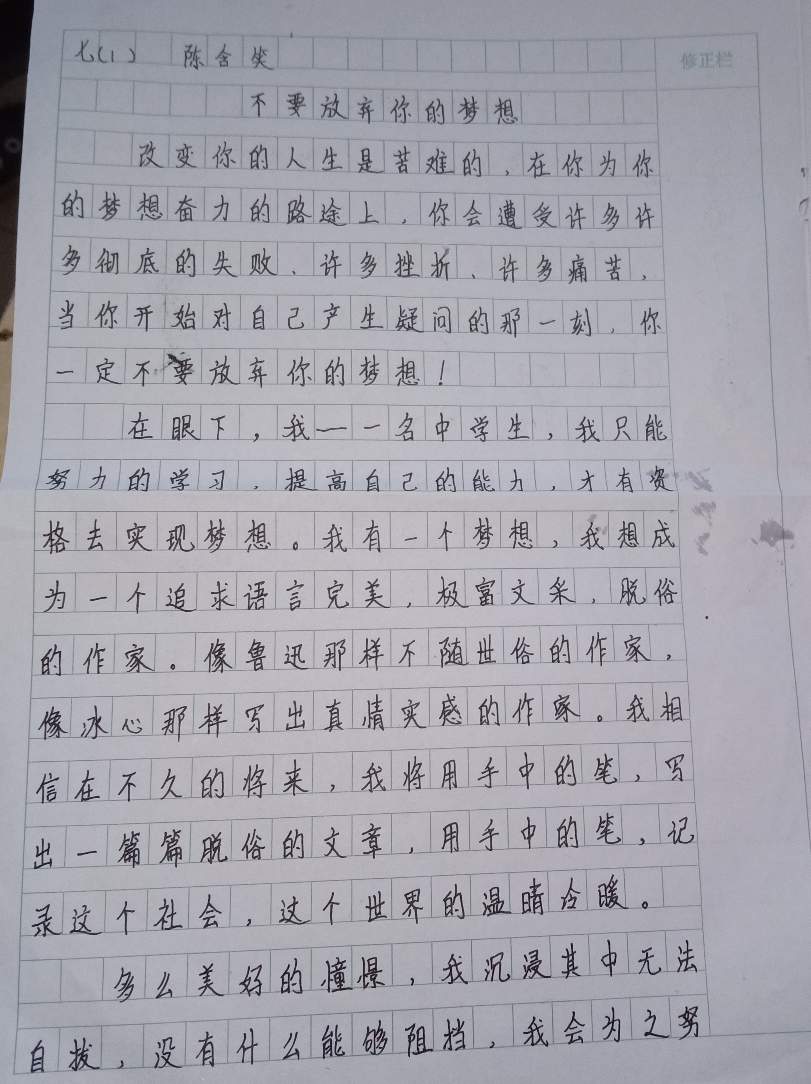 七(1) 陈含笑
修正栏
不要放弃你的梦想
改变你的人生是苦难的，在你为你
的梦想奋力的路途上，你会遭受许多许
多彻底的失败、许多挫折、许多痛苦，
当你开始对自己产生疑问的那一刻，你
一定不要放弃你的梦想！
在眼下，我一一名中学生，我只能
努力的学习，提高自己的能力，才有资
格去实现梦想。我有一个梦想，我想成
为一个追求语言完美，极富文采，脱俗
的作家。像鲁迅那样不随世俗的作家，
像冰心那样写出真情实感的作家。我相
信在不久的将来，我将用手中的笔，写
出一篇篇脱俗的文章，用手中的笔，记
录这个社会，这个世界的温晴冷暖。
多么美好的憧憬，我沉浸其中无法
自拔，没有什么能够阻挡，我会为之努